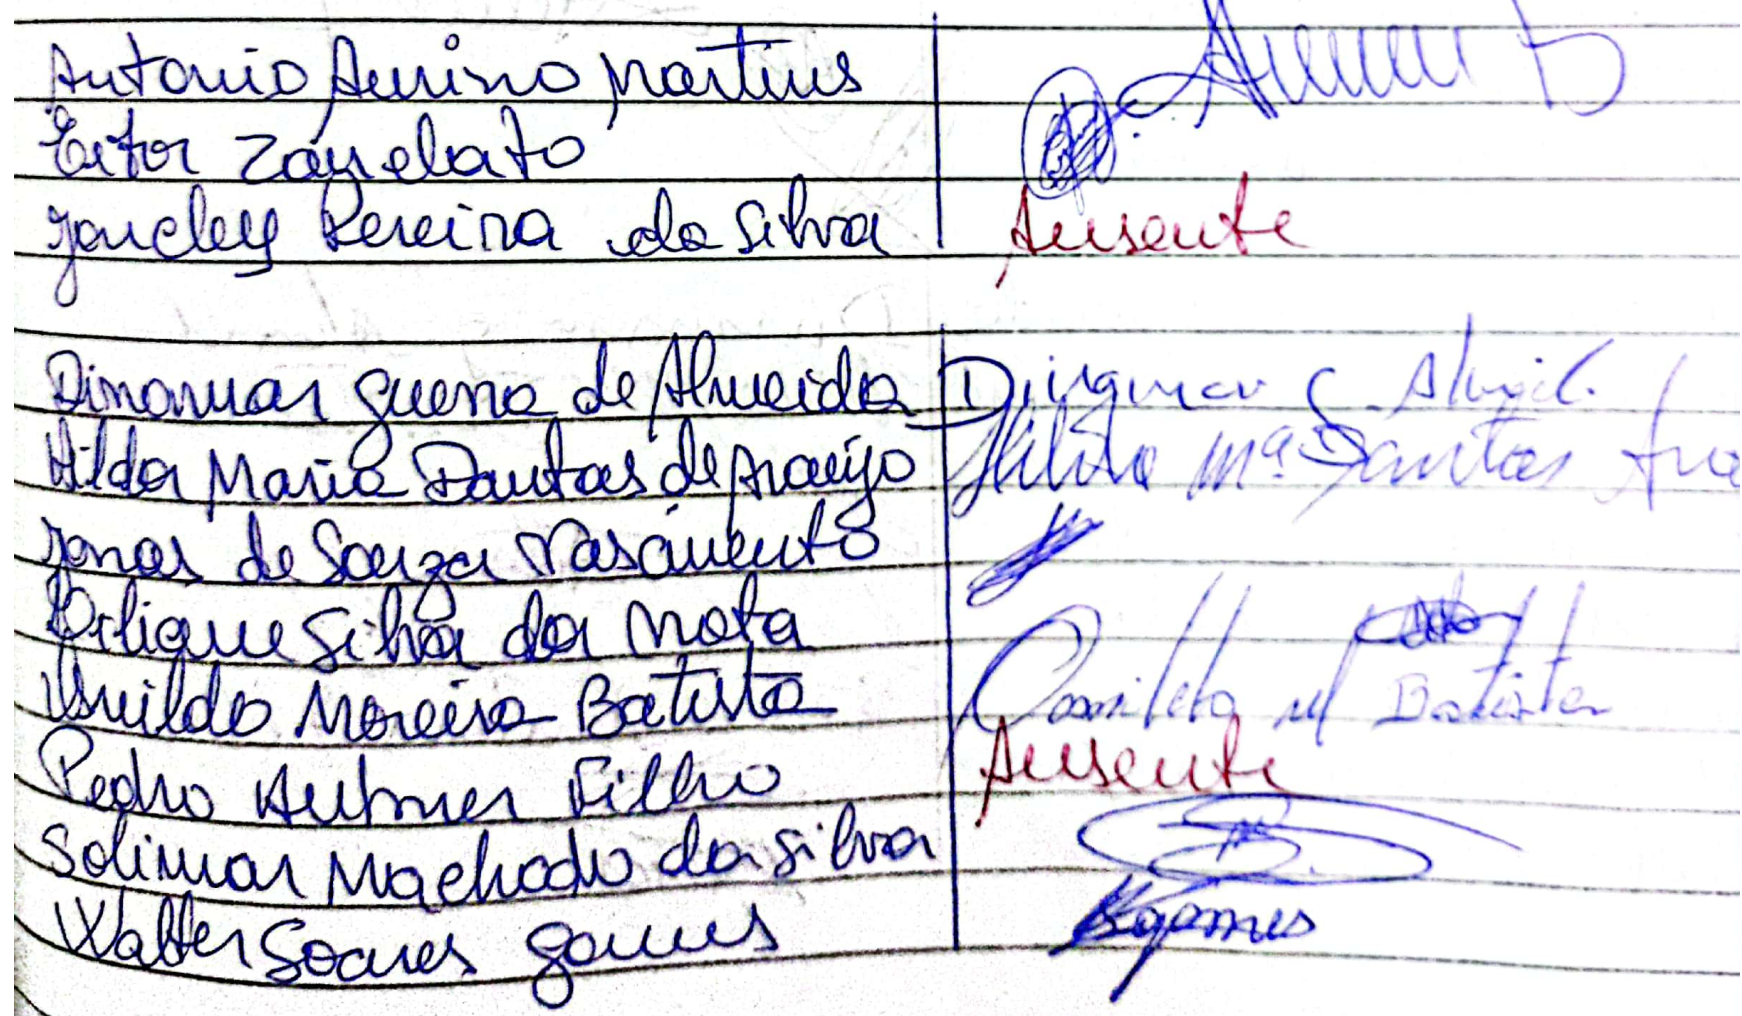 Antonio Aurino Martins
Eitor Zanelato
Jancley Pereira da Silva Ausente
Dinamar Guerra de Almeida Dinamar G Almeid.
Hilda Maria Dantas de Araújo Hilda Mª Dantas Ara
Jonas de Souza Nascimento
Silva da Mota
Moreira Batista M Batista
Pedro Hubner Filho Ausente
Solimar Machado da Silva
Walter Soares Gomes SGomes